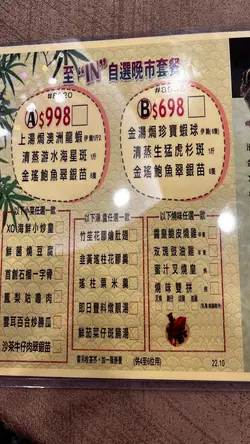 至“IN”自選晚市套餐
#8820
Ⓐ$998
上湯焗澳洲龍蝦
清蒸游水海星斑 1斤
金瑤鮑魚翠銀苗 6隻
Ⓑ$698
金湯焗珍寶蝦球
清蒸生猛虎杉斑 1斤
金瑤鮑魚翠銀苗 4隻
以下小菜任選一款
XO海鮮小炒皇
鮮菌燒豆腐
首創石榴一字骨
鳳梨咕嚕肉
雲耳百合炒勝瓜
沙茶牛仔肉翠銀苗
以下湯羹任選一款
竹笙花膠燴肚翅
韭黃瑤柱花膠羹
瑤柱粟米羹
即日豐料燉靚湯
鮮茄菜仔斑腩湯
以下燒味任選一款
醬皇脆皮燒雞
玫瑰豉油雞
蜜汁叉燒皇
燒味雙拼
另收茶芥，加一服務費
(供4至6位用)
22.10